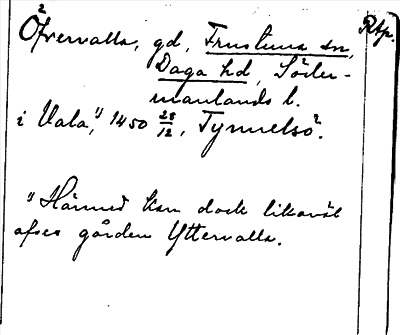 Öfvervalla, gd, Frustuna sn,
Rtp.
Daga hd, Söder-
manlands l.
i Vala,¹⁾ 1450 28/12, Tynnelsö.
¹⁾ Härmed kan dock likaväl
afses gården Yttervalla.